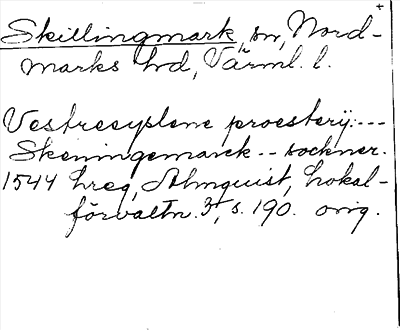 Skillingmark, sn, Nord-
marks hd, Värml. l.
Vestresyslene proesterij:---
Skeningemarck -- sockner.
1544 hreg, Almquist, Lokal-
förvaltn. 3, s. 190. orig.